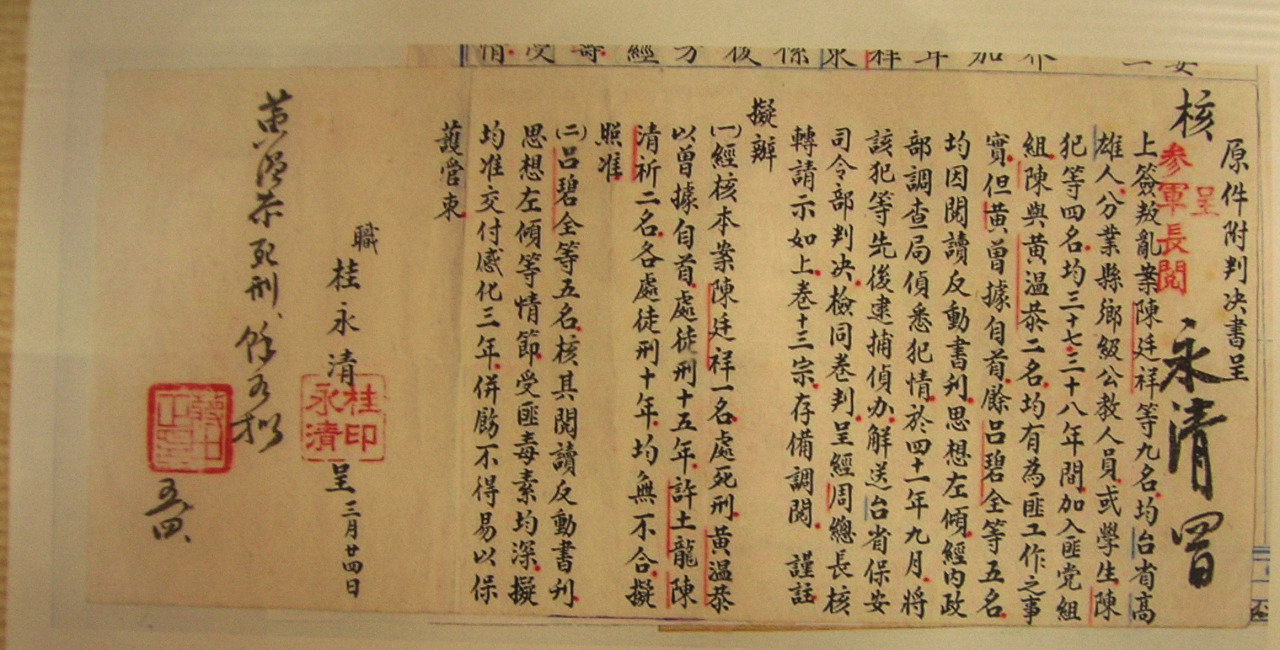 原件附判决書呈
呈
參軍長閱
核
永清
上簽叛亂案陳廷祥等九名均台省高
雄人分業縣鄉級公教人員或學生陳
犯等四名均三十七三十八年間加入匪党組
組陳與黃温恭二名均有為匪工作之事
實但黃曾據自首餘呂碧全等五名
均因閱讀反動書刋思想左傾經内政
部調查局偵悉犯情於四十一年九月將
該犯等先後逮捕偵办解送台省保安
司令部判决檢同卷判呈經周總長核
轉請示如上卷十三宗存備調閱 謹註
擬辦
㈠經核本案陳廷祥一名處死刑黃温恭
以曾據自首處徒刑十五年許土龍陳
清祈二名各處徒刑十年均無不合擬
照准
㈡呂碧全等五名核其閱讀反動書刋
思想左傾等情節受匪毒素均深擬
均准交付感化三年併飭不得易以保
護管束
職 桂永清 呈 三月廿四日
桂永清印
黃温恭死刑、餘如擬
五四